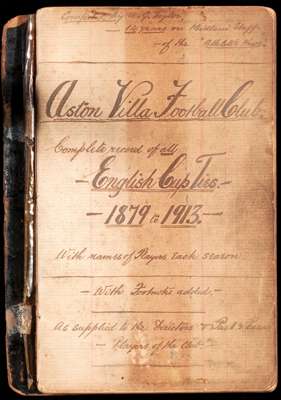 Compiled by W. G. Taylor
14 years on Editorial Staff
- of the "Athletic News"
Aston Villa Football Club.
Complete record of all
- English Cup Ties. -
- 1879 to 1913. -
With names of Players each season.
- With Footnotes added. -
As supplied to the Directors & Past &
Players of the Club.